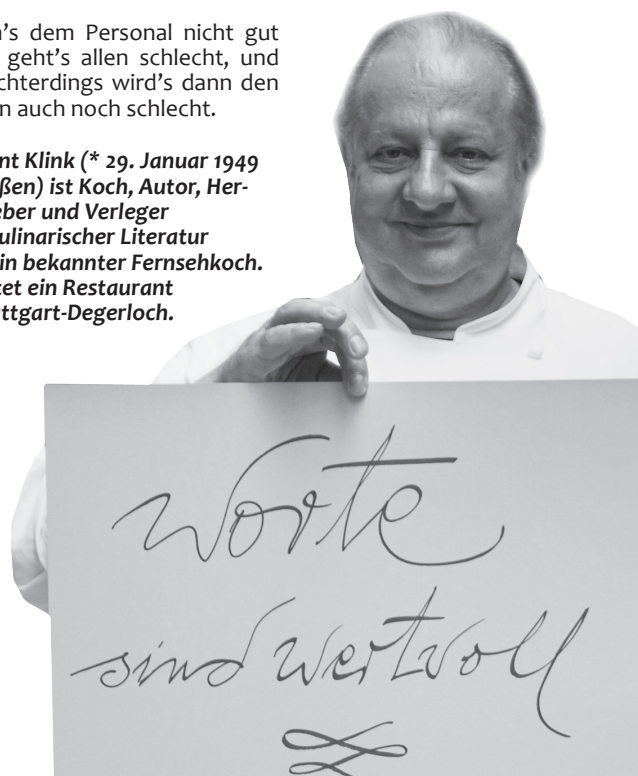 's dem Personal nicht gut
geht's allen schlecht, und
chterdings wird's dann den
n auch noch schlecht.
nt Klink (* 29. Januar 1949
ßen) ist Koch, Autor, Her-
eber und Verleger
ulinarischer Literatur
in bekannter Fernsehkoch.
tet ein Restaurant
ttgart-Degerloch.
Worte
sind wertvoll